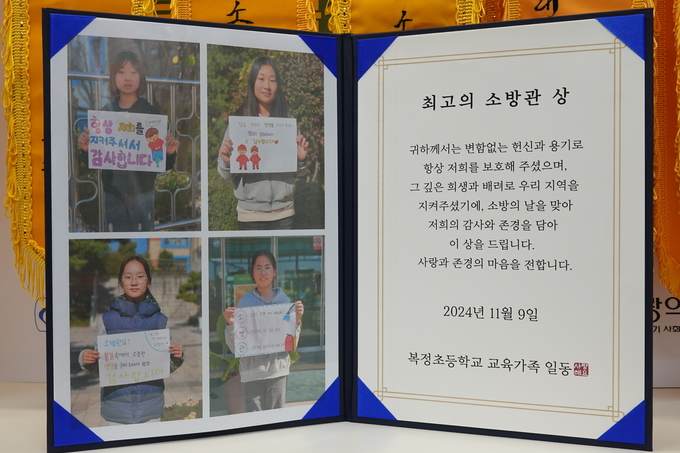 소
소
래
항상 저희를
지켜주셔서
감사합니다
소방관님!
감사합니다
소
방
관
최고의 소방관 상
귀하께서는 변함없는 헌신과 용기로
항상 저희를 보호해 주셨으며,
그 깊은 희생과 배려로 우리 지역을
지켜주셨기에, 소방의 날을 맞아
저희의 감사와 존경을 담아
이 상을 드립니다.
사랑과 존경의 마음을 전합니다.
2024년 11월 9일
복정초등학교 교육가족 일동